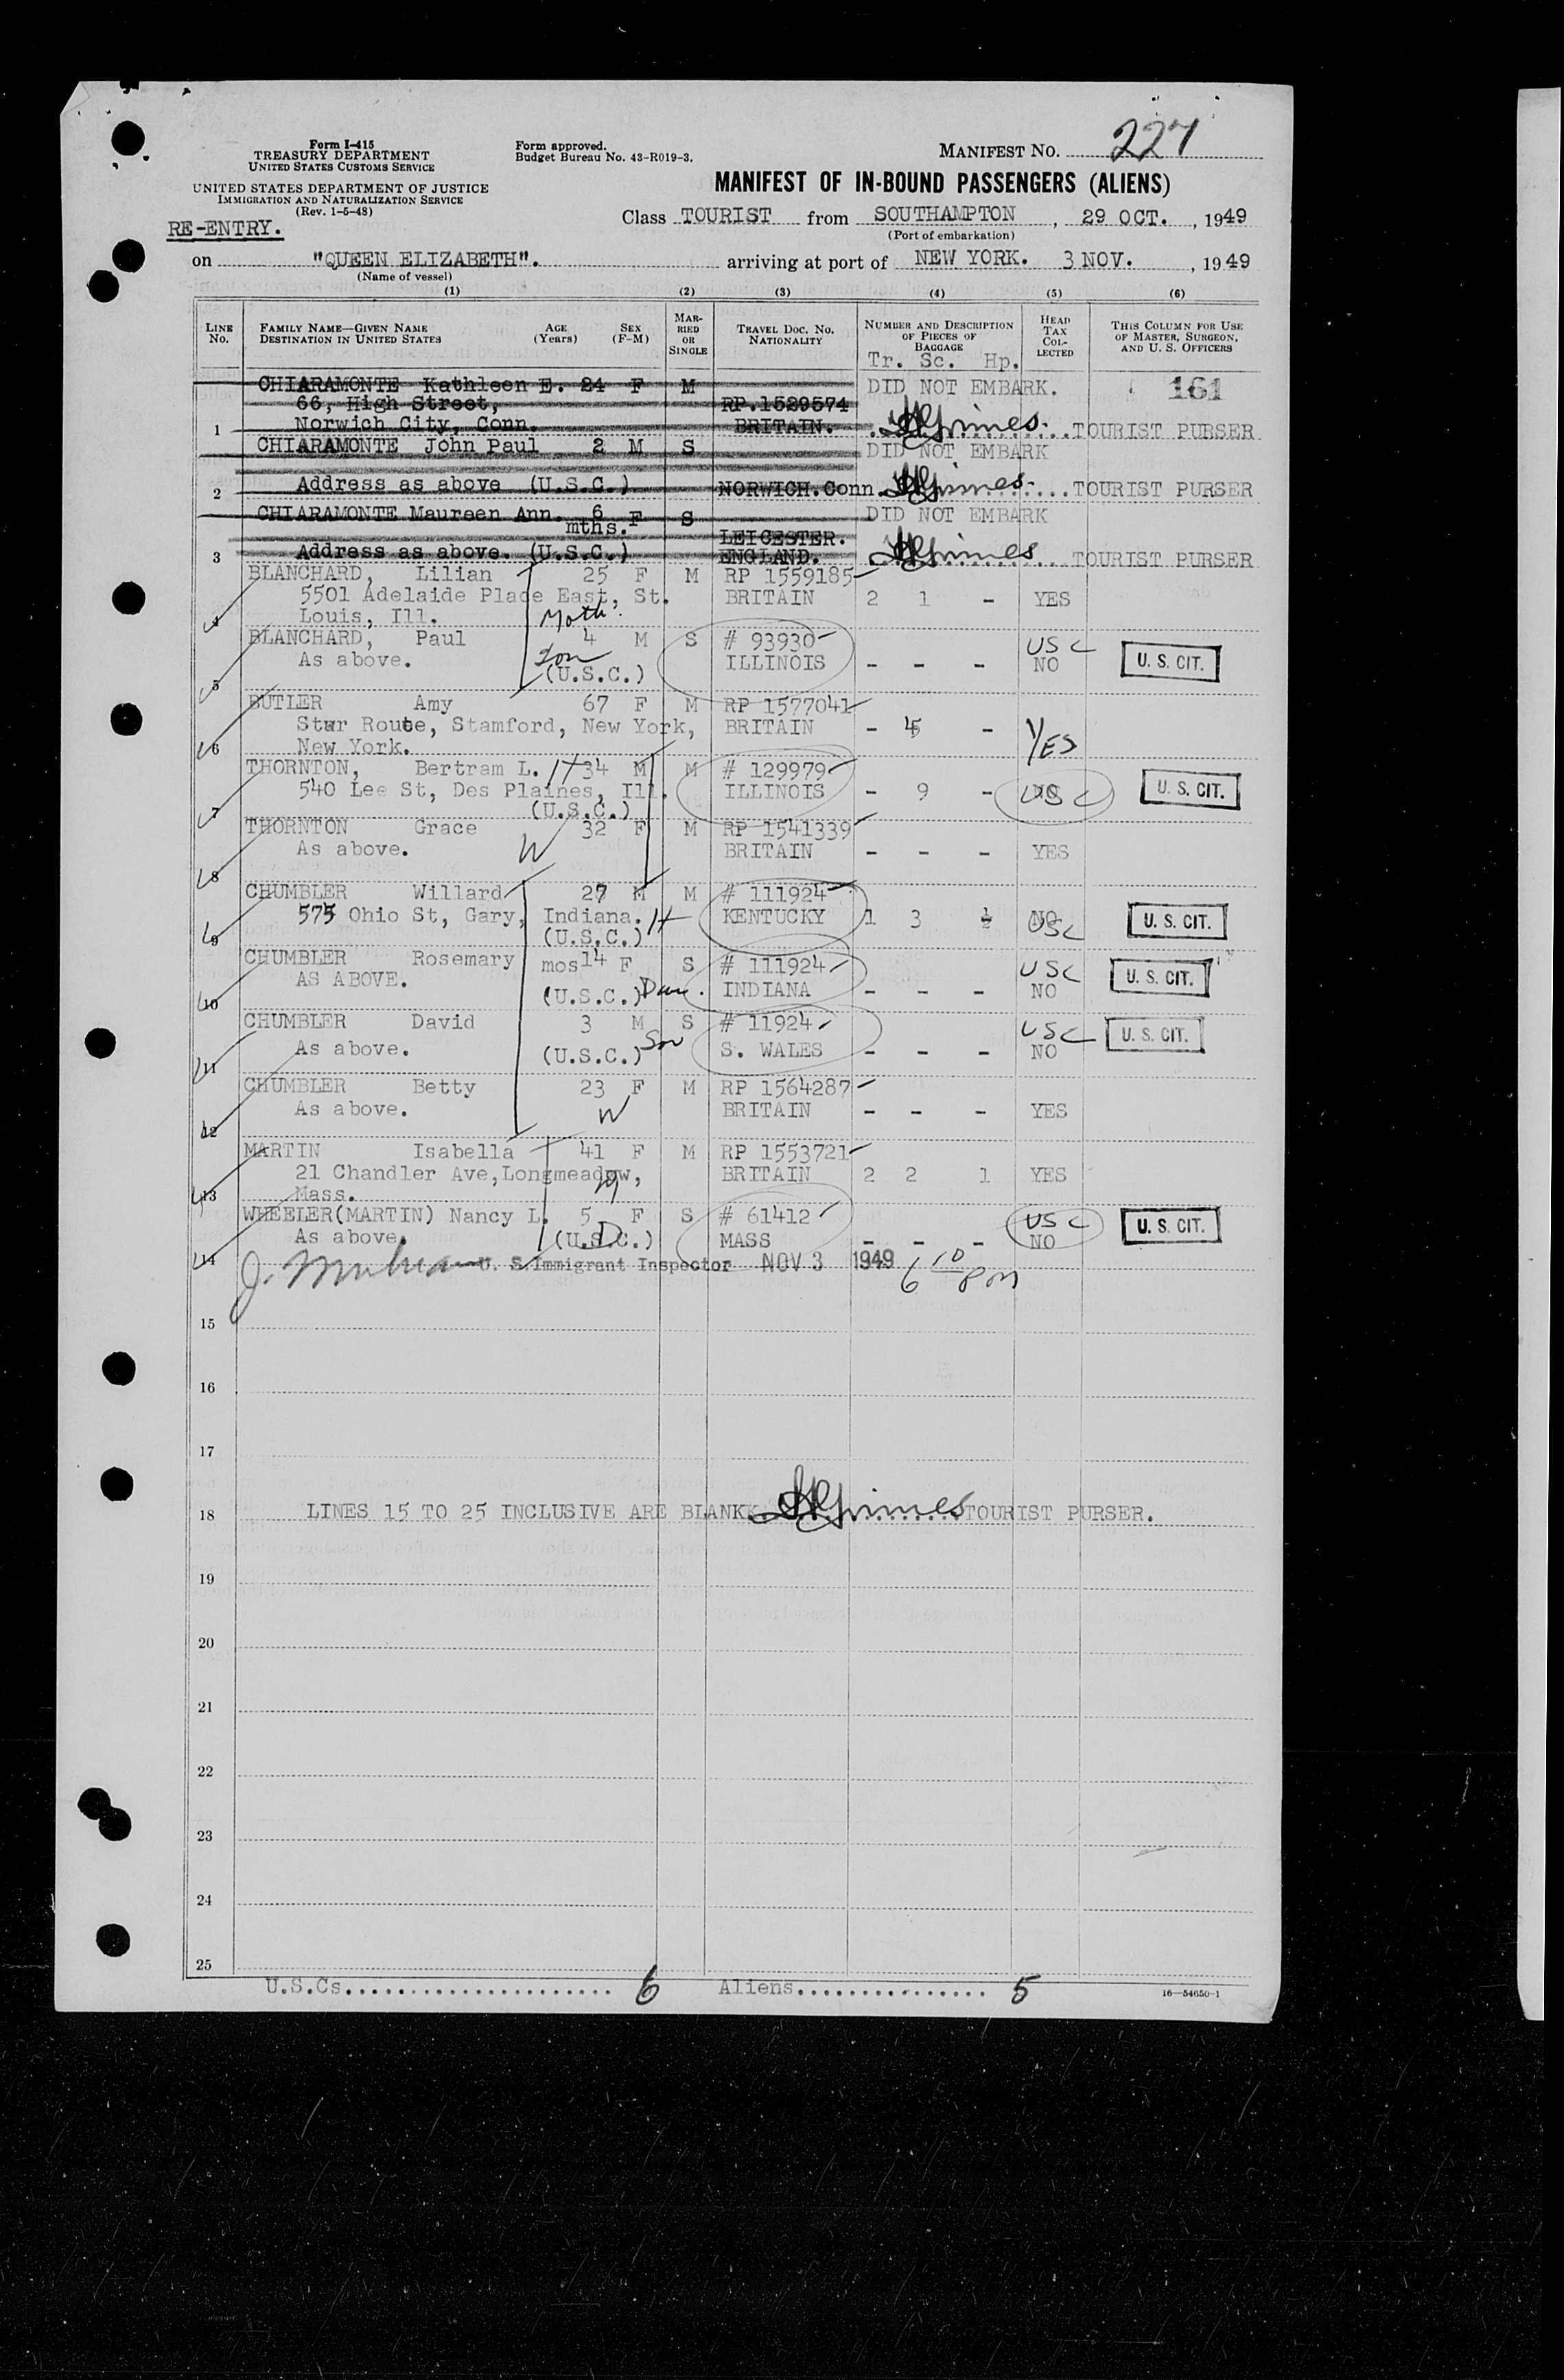 Form I-415
TREASURY DEPARTMENT
UNITED STATES CUSTOMS SERVICE
UNITED STATES DEPARTMENT OF JUSTICE
IMMIGRATION AND NATURALIZATION SERVICE
(Rev. 1-5-48)
RE-ENTRY.
Form approved.
Budget Bureau No. 43-R019-3.
MANIFEST NO. 227
MANIFEST OF IN-BOUND PASSENGERS (ALIENS)
Class TOURIST from SOUTHAMPTON, 29 OCT., 1949
(Port of embarkation)
on "QUEEN ELIZABETH". arriving at port of NEW YORK. 3 NOV., 1949
(Name of vessel)
(1) (2) (3) (4) (5) (6)
LINE NO.
FAMILY NAME—GIVEN NAME
DESTINATION IN UNITED STATES
AGE (Years)
SEX (F-M)
MARRIED OR SINGLE
TRAVEL DOC. NO.
NATIONALITY
NUMBER AND DESCRIPTION OF PIECES OF BAGGAGE
Tr. Sc. Hp.
HEAD TAX COLLECTED
THIS COLUMN FOR USE OF MASTER, SURGEON, AND U. S. OFFICERS
CHIARAMONTE Kathleen E. 24 F M DID NOT EMBARK. 161
66, High Street, RP.1529574
1 Norwich City, Conn. BRITAIN. TOURIST PURSER
CHIARAMONTE John Paul 2 M S DID NOT EMBARK
2 Address as above (U.S.C.) NORWICH.Conn. TOURIST PURSER
CHIARAMONTE Maureen Ann. 6 mths. F S DID NOT EMBARK
LEICESTER.
3 Address as above. (U.S.C.) ENGLAND. TOURIST PURSER
BLANCHARD, Lilian 25 F M RP 1559185
5501 Adelaide Place East, St. BRITAIN 2 1 - YES
4 Louis, Ill. Moth.
BLANCHARD, Paul 4 M S # 93930 USC
As above. Son ILLINOIS - - - NO U. S. CIT.
5 (U.S.C.)
BUTLER Amy 67 F M RP 1577041
Star Route, Stamford, New York, BRITAIN - 4 - YES
6 New York.
THORNTON, Bertram L. H 34 M M # 129979
540 Lee St, Des Plaines, Ill. ILLINOIS - 9 - USC U. S. CIT.
7 (U.S.C.)
THORNTON Grace 32 F M RP 1541339
As above. W BRITAIN - - - YES
8
CHUMBLER Willard 27 M M # 111924
575 Ohio St, Gary, Indiana. H KENTUCKY 1 3 1/2 NO USC U. S. CIT.
9 (U.S.C.)
CHUMBLER Rosemary mos 14 F S # 111924 USC
AS ABOVE. INDIANA - - - NO U. S. CIT.
10 (U.S.C.) Dau.
CHUMBLER David 3 M S # 11924 USC
As above. (U.S.C.) Son S. WALES - - - NO U. S. CIT.
11
CHUMBLER Betty 23 F M RP 1564287
As above. W BRITAIN - - - YES
12
MARTIN Isabella 41 F M RP 1553721
21 Chandler Ave, Longmeadow, M BRITAIN 2 2 1 YES
13 Mass.
WHEELER(MARTIN) Nancy L. 5 F S # 61412 USC
As above. (U.S.C.) D MASS - - - NO U. S. CIT.
14 U. S. Immigrant Inspector NOV 3 1949 6 10 PM
15
16
17
18 LINES 15 TO 25 INCLUSIVE ARE BLANK. TOURIST PURSER.
19
20
21
22
23
24
25
U.S.Cs. 6 Aliens. 5
16—54650-1